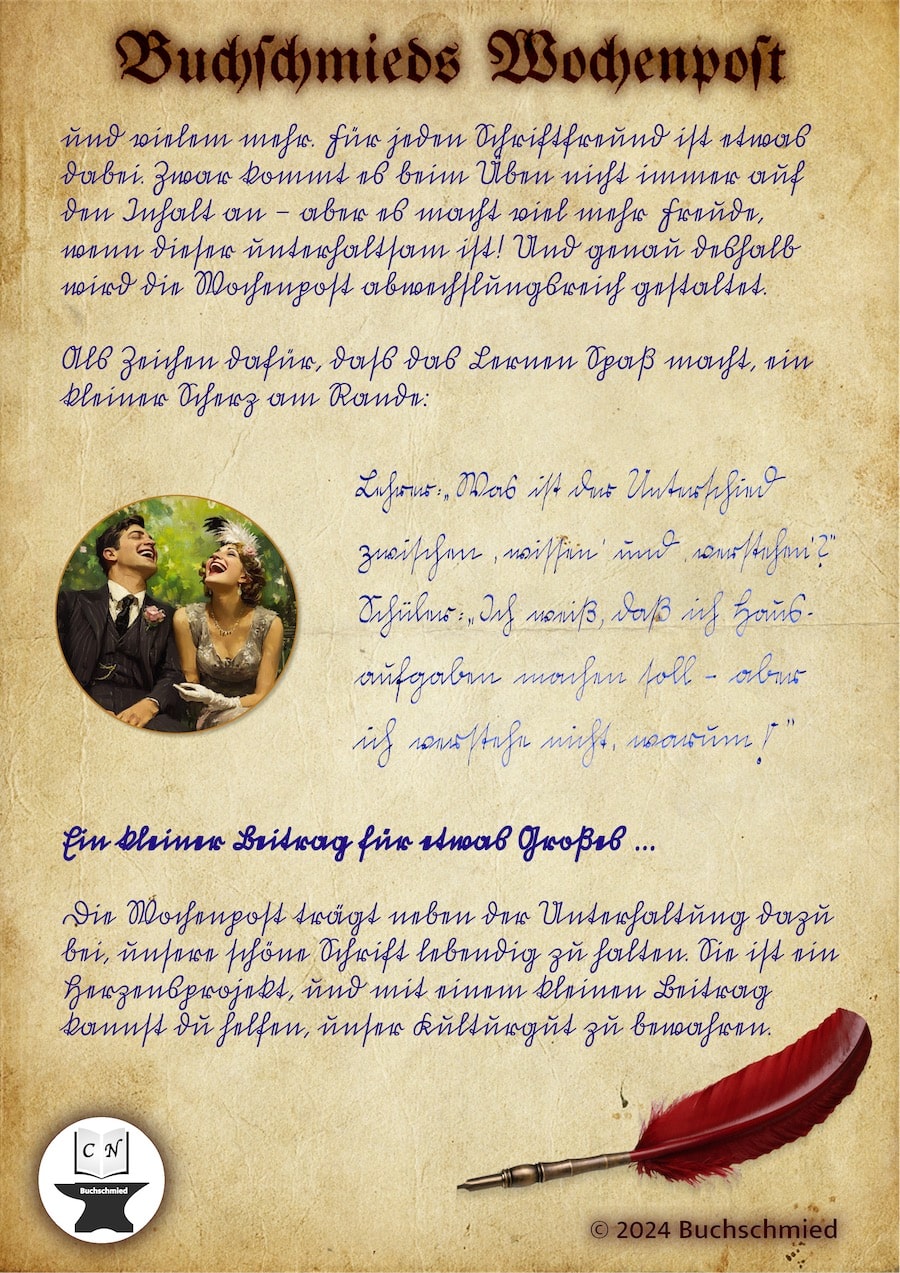 Buchſchmieds Wochenpoſt
und vielem mehr. Für jeden Schriftfreund iſt etwas
dabei. Zwar kommt es beim Üben nicht immer auf
den Inhalt an – aber es macht viel mehr Freude,
wenn dieſer unterhaltſam iſt! Und genau deshalb
wird die Wochenpoſt abwechſlungsreich geſtaltet.
Als Zeichen dafür, daſs das Lernen Spaß macht, ein
kleiner Scherz am Rande:
Lehrer: „Was iſt der Unterſchied
zwiſchen ‚wiſſen‘ und ‚verſtehen‘?“
Schüler: „Ich weiß, daß ich Haus-
aufgaben machen ſoll – aber
ich verſtehe nicht, warum!“
Ein kleiner Beitrag für etwas Großes ...
Die Wochenpoſt trägt neben der Unterhaltung dazu
bei, unſere ſchöne Schrift lebendig zu halten. Sie iſt ein
Herzensprojekt, und mit einem kleinen Beitrag
kannſt du helfen, unſer Kulturgut zu bewahren.
C N
Buchschmied
© 2024 Buchschmied